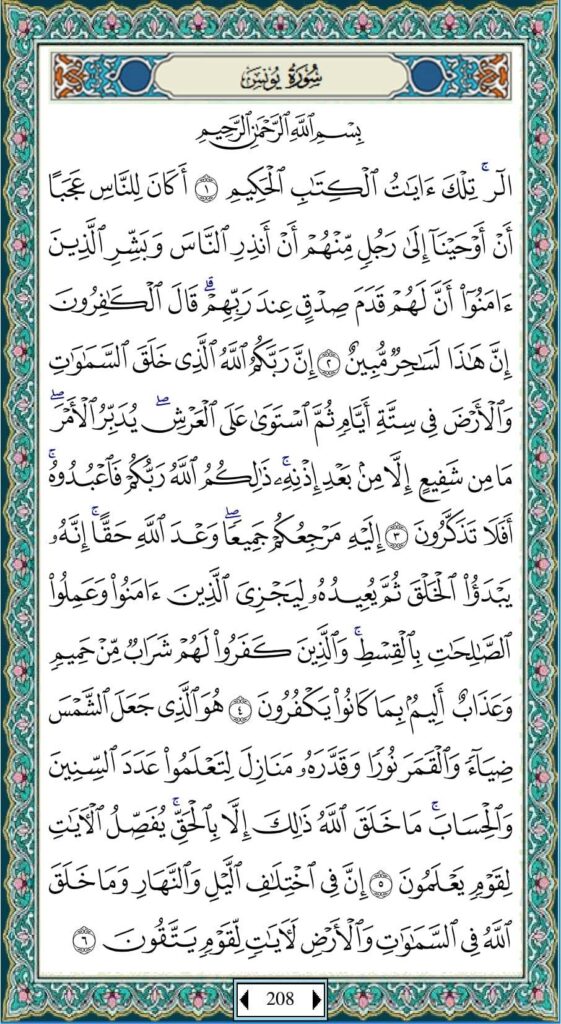 سُورَةُ يُونُسَ
بِسْمِ ٱللَّهِ ٱلرَّحْمَٰنِ ٱلرَّحِيمِ
الٓر ۚ تِلْكَ ءَايَٰتُ ٱلْكِتَٰبِ ٱلْحَكِيمِ ١ أَكَانَ لِلنَّاسِ عَجَبًا
أَنْ أَوْحَيْنَآ إِلَىٰ رَجُلٍ مِّنْهُمْ أَنْ أَنذِرِ ٱلنَّاسَ وَبَشِّرِ ٱلَّذِينَ
ءَامَنُوٓا۟ أَنَّ لَهُمْ قَدَمَ صِدْقٍ عِندَ رَبِّهِمْ ۗ قَالَ ٱلْكَٰفِرُونَ
إِنَّ هَٰذَا لَسَٰحِرٌ مُّبِينٌ ٢ إِنَّ رَبَّكُمُ ٱللَّهُ ٱلَّذِى خَلَقَ ٱلسَّمَٰوَٰتِ
وَٱلْأَرْضَ فِى سِتَّةِ أَيَّامٍ ثُمَّ ٱسْتَوَىٰ عَلَى ٱلْعَرْشِ ۖ يُدَبِّرُ ٱلْأَمْرَ ۖ
مَا مِن شَفِيعٍ إِلَّا مِنۢ بَعْدِ إِذْنِهِۦ ۚ ذَٰلِكُمُ ٱللَّهُ رَبُّكُمْ فَٱعْبُدُوهُ ۚ
أَفَلَا تَذَكَّرُونَ ٣ إِلَيْهِ مَرْجِعُكُمْ جَمِيعًا ۖ وَعْدَ ٱللَّهِ حَقًّا ۚ إِنَّهُۥ
يَبْدَؤُا۟ ٱلْخَلْقَ ثُمَّ يُعِيدُهُۥ لِيَجْزِىَ ٱلَّذِينَ ءَامَنُوا۟ وَعَمِلُوا۟
ٱلصَّٰلِحَٰتِ بِٱلْقِسْطِ ۚ وَٱلَّذِينَ كَفَرُوا۟ لَهُمْ شَرَابٌ مِّنْ حَمِيمٍ
وَعَذَابٌ أَلِيمٌۢ بِمَا كَانُوا۟ يَكْفُرُونَ ٤ هُوَ ٱلَّذِى جَعَلَ ٱلشَّمْسَ
ضِيَآءً وَٱلْقَمَرَ نُورًا وَقَدَّرَهُۥ مَنَازِلَ لِتَعْلَمُوا۟ عَدَدَ ٱلسِّنِينَ
وَٱلْحِسَابَ ۚ مَا خَلَقَ ٱللَّهُ ذَٰلِكَ إِلَّا بِٱلْحَقِّ ۚ يُفَصِّلُ ٱلْءَايَٰتِ
لِقَوْمٍ يَعْلَمُونَ ٥ إِنَّ فِى ٱخْتِلَٰفِ ٱلَّيْلِ وَٱلنَّهَارِ وَمَا خَلَقَ
ٱللَّهُ فِى ٱلسَّمَٰوَٰتِ وَٱلْأَرْضِ لَءَايَٰتٍ لِّقَوْمٍ يَتَّقُونَ ٦
208